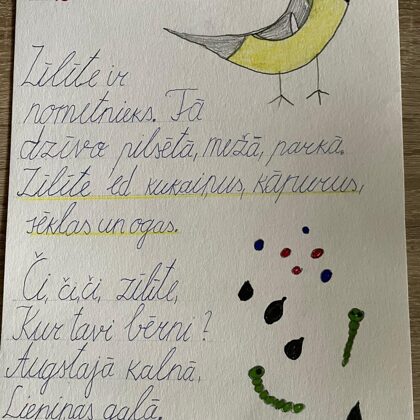 Zīlīte ir
nometnieks. Tā
dzīvo pilsētā, mežā, parkā.
Zīlīte ēd kukaiņus, kāpurus,
sēklas un ogas.
Či, či, či, zīlīte,
Kur tavi bērni?
Augstajā kalnā,
Liepiņas galā.